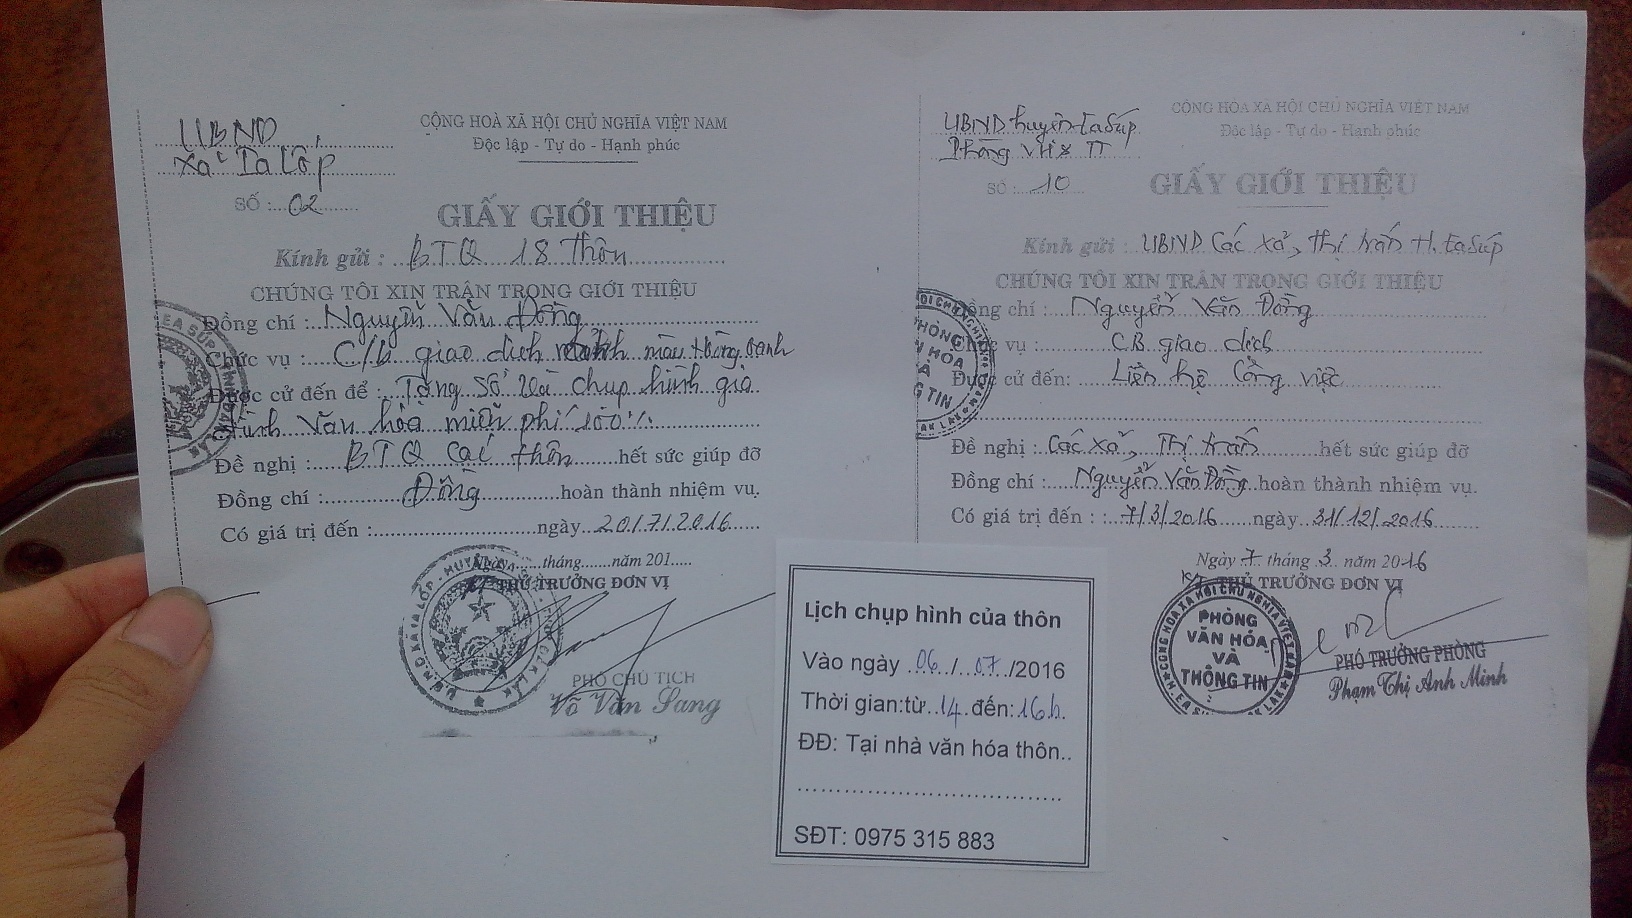 UBND
xã Ia Lốp
SỐ : 02
CỘNG HOÀ XÃ HỘI CHỦ NGHĨA VIỆT NAM
Độc lập - Tự do - Hạnh phúc
GIẤY GIỚI THIỆU
Kính gửi : BTQ 18 thôn
CHÚNG TÔI XIN TRÂN TRỌNG GIỚI THIỆU
Đồng chí : Nguyễn Văn Đồng
Chức vụ : C/b giao dịch màu
Được cử đến để : Tặng sổ và chụp hình gia
đình Văn hóa miễn phí 100%
Đề nghị : BTQ các thôn hết sức giúp đỡ
Đồng chí : Đồng hoàn thành nhiệm vụ.
Có giá trị đến : ngày 20/7/2016
Ngày tháng năm 201
THỦ TRƯỞNG ĐƠN VỊ
PHÓ CHỦ TỊCH
Võ Văn Sang
UBND huyện EaSúp
Phòng VH& TT
SỐ : 10
CỘNG HÒA XÃ HỘI CHỦ NGHĨA VIỆT NAM
Độc lập - Tự do - Hạnh phúc
GIẤY GIỚI THIỆU
Kính gửi : UBND các xã, thị trấn H. EaSúp
CHÚNG TÔI XIN TRÂN TRỌNG GIỚI THIỆU
Đồng chí : Nguyễn Văn Đồng
Chức vụ : CB. giao dịch
Được cử đến: Liên hệ Công việc
Đề nghị : Các xã, Thị trấn hết sức giúp đỡ
Đồng chí : Nguyễn Văn Đồng hoàn thành nhiệm vụ.
Có giá trị đến : 7/3/2016 ngày 31/12/2016
Ngày 7 tháng 3 năm 2016
THỦ TRƯỞNG ĐƠN VỊ
PHÒNG
VĂN HÓA
VÀ
THÔNG TIN
PHÓ TRƯỞNG PHÒNG
Phạm Thị Anh Minh
Lịch chụp hình của thôn
Vào ngày 06/ 07 /2016
Thời gian:từ 14 đến: 16h.
ĐĐ: Tại nhà văn hóa thôn..
SĐT: 0975 315 883